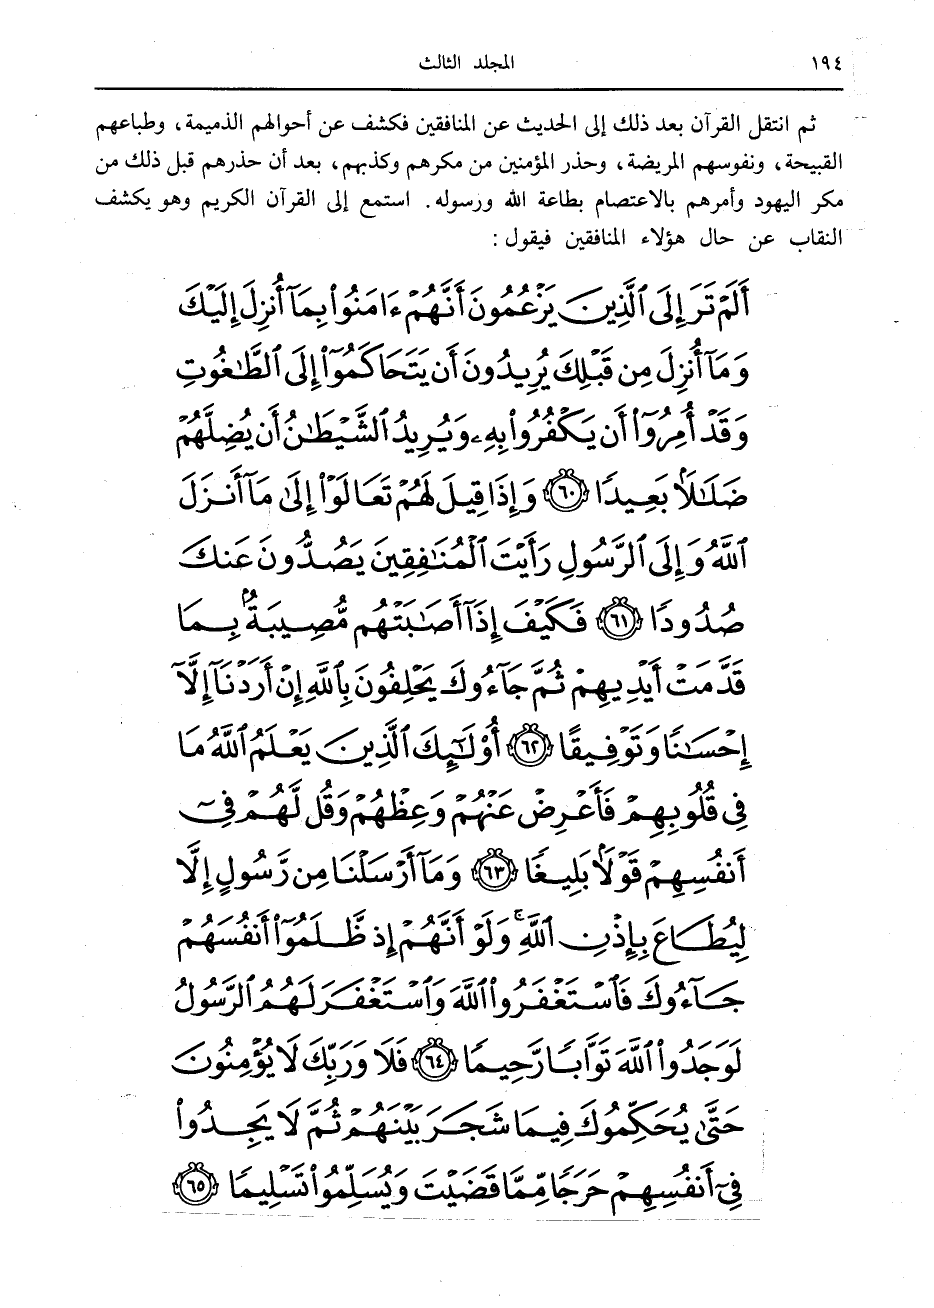 ١٩٤
المجلد الثالث
ثم انتقل القرآن بعد ذلك إلى الحديث عن المنافقين فكشف عن أحوالهم الذميمة، وطباعهم
القبيحة، ونفوسهم المريضة، وحذر المؤمنين من مكرهم وكذبهم، بعد أن حذرهم قبل ذلك من
مكر اليهود وأمرهم بالاعتصام بطاعة الله ورسوله. استمع إلى القرآن الكريم وهو يكشف
النقاب عن حال هؤلاء المنافقين فيقول:
أَلَمْ تَرَ إِلَى ٱلَّذِينَ يَزْعُمُونَ أَنَّهُمْ ءَامَنُوا۟ بِمَآ أُنزِلَ إِلَيْكَ
وَمَآ أُنزِلَ مِن قَبْلِكَ يُرِيدُونَ أَن يَتَحَاكَمُوٓا۟ إِلَى ٱلطَّـٰغُوتِ
وَقَدْ أُمِرُوٓا۟ أَن يَكْفُرُوا۟ بِهِۦ وَيُرِيدُ ٱلشَّيْطَـٰنُ أَن يُضِلَّهُمْ
ضَلَـٰلًۢا بَعِيدًا ٦٠ وَإِذَا قِيلَ لَهُمْ تَعَالَوْا۟ إِلَىٰ مَآ أَنزَلَ
ٱللَّهُ وَإِلَى ٱلرَّسُولِ رَأَيْتَ ٱلْمُنَـٰفِقِينَ يَصُدُّونَ عَنكَ
صُدُودًا ٦١ فَكَيْفَ إِذَآ أَصَـٰبَتْهُم مُّصِيبَةٌۢ بِمَا
قَدَّمَتْ أَيْدِيهِمْ ثُمَّ جَآءُوكَ يَحْلِفُونَ بِٱللَّهِ إِنْ أَرَدْنَآ إِلَّآ
إِحْسَـٰنًا وَتَوْفِيقًا ٦٢ أُو۟لَـٰٓئِكَ ٱلَّذِينَ يَعْلَمُ ٱللَّهُ مَا
فِى قُلُوبِهِمْ فَأَعْرِضْ عَنْهُمْ وَعِظْهُمْ وَقُل لَّهُمْ فِىٓ
أَنفُسِهِمْ قَوْلًۢا بَلِيغًا ٦٣ وَمَآ أَرْسَلْنَا مِن رَّسُولٍ إِلَّا
لِيُطَاعَ بِإِذْنِ ٱللَّهِ ۚ وَلَوْ أَنَّهُمْ إِذ ظَّلَمُوٓا۟ أَنفُسَهُمْ
جَآءُوكَ فَٱسْتَغْفَرُوا۟ ٱللَّهَ وَٱسْتَغْفَرَ لَهُمُ ٱلرَّسُولُ
لَوَجَدُوا۟ ٱللَّهَ تَوَّابًا رَّحِيمًا ٦٤ فَلَا وَرَبِّكَ لَا يُؤْمِنُونَ
حَتَّىٰ يُحَكِّمُوكَ فِيمَا شَجَرَ بَيْنَهُمْ ثُمَّ لَا يَجِدُوا۟
فِىٓ أَنفُسِهِمْ حَرَجًا مِّمَّا قَضَيْتَ وَيُسَلِّمُوا۟ تَسْلِيمًا ٦٥